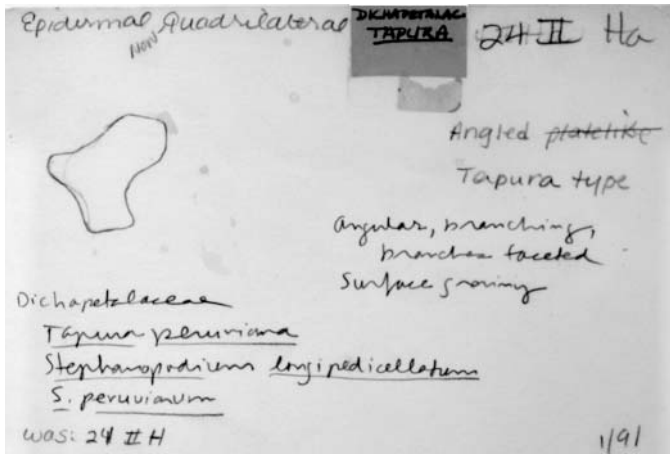 Epidermal Non Quadrilateral
DICHAPETALAC
TAPURA
24 II Ha
Angled platelike
Tapura type
Angular, branching,
branches faceted
Surface
Dichapetalaceae
Tapura peruviana
Stephanopodium longipedicellatum
S. peruvianum
was: 24 II H
1/91